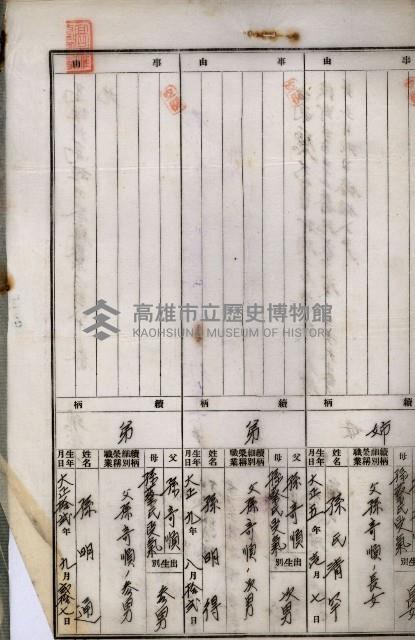 事由
事由
事由
高雄市立歷史博物館
KAOHSIUNG MUSEUM OF HISTORY
續柄
姊
母
續柄細別榮稱職業
父孫奇順ノ長女
姓名
孫氏
生年月日
大正五年 月 七日
續柄
弟
父
孫奇順
母
出生別
次男
續柄細別榮稱職業
父孫奇順ノ次男
姓名
孫明得
生年月日
大正九年八月拾貳日
續柄
弟
父
孫奇順
母
出生別
參男
續柄細別榮稱職業
父孫奇順ノ參男
姓名
孫明通
生年月日
大正拾貳年九月 七日